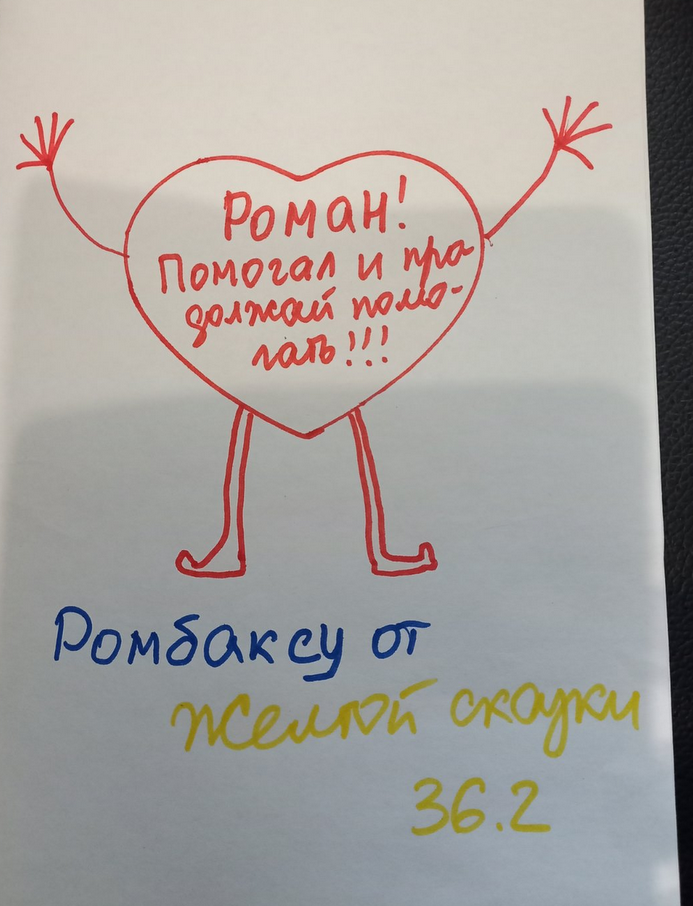 Роман!
Помогал и про
должай помо-
гать!!!
Ромбаксу от
Желтой скауки
36.2